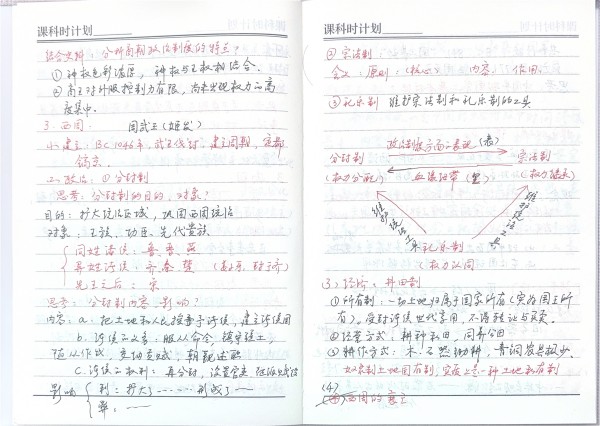 课科时计划
结合史料：分析商朝政治制度的特点？
① 神权色彩浓厚，神权与王权相结合。
② 商王对外服控制力有限，尚未出现权力的高
度集中。
3. 西周： 周武王(姬发)
(1). 建立：BC1046年，武王伐纣，建立周朝，定都
镐京。
(2). 政治：① 分封制
思考：分封制的目的、对象？
目的：扩大统治区域，巩固西周统治
对象：王族、功臣、先代贵族
同姓诸侯：鲁、晋、燕
异姓诸侯：齐、秦、楚
先王之后：宋
思考：分封制内容、影响？
内容：a. 把土地和人民授予诸侯，建立诸侯国
b. 诸侯的义务：服从命令、镇守疆土、
随从作战、交纳贡赋、朝觐述职
c. 诸侯的权利：再分封、设置官吏、征派赋役
影响
利：扩大了……形成了—
弊：——
课科时计划
② 宗法制
含义：原则：(核心) 内容、作用。
③ 礼乐制 维护宗法制和礼乐制的工具
政治制度方面的表现(表)
分封制 宗法制
(权力分配) 血缘纽带(里) (权力继承)
维护统治工具 维护统治工具
礼乐制
(权力认同)
(3) 经济：井田制
① 所有制：一切土地归属于国家所有(实为国王所
有)。受封诸侯世代享用，不得转让与买卖。
② 经营方式：耕种私田，同养公田
③ 耕作方式：木、石器助耕，青铜农具极少。
如名义土地国有制，实质上是一种土地私有制
(4)
④ 西周的衰亡